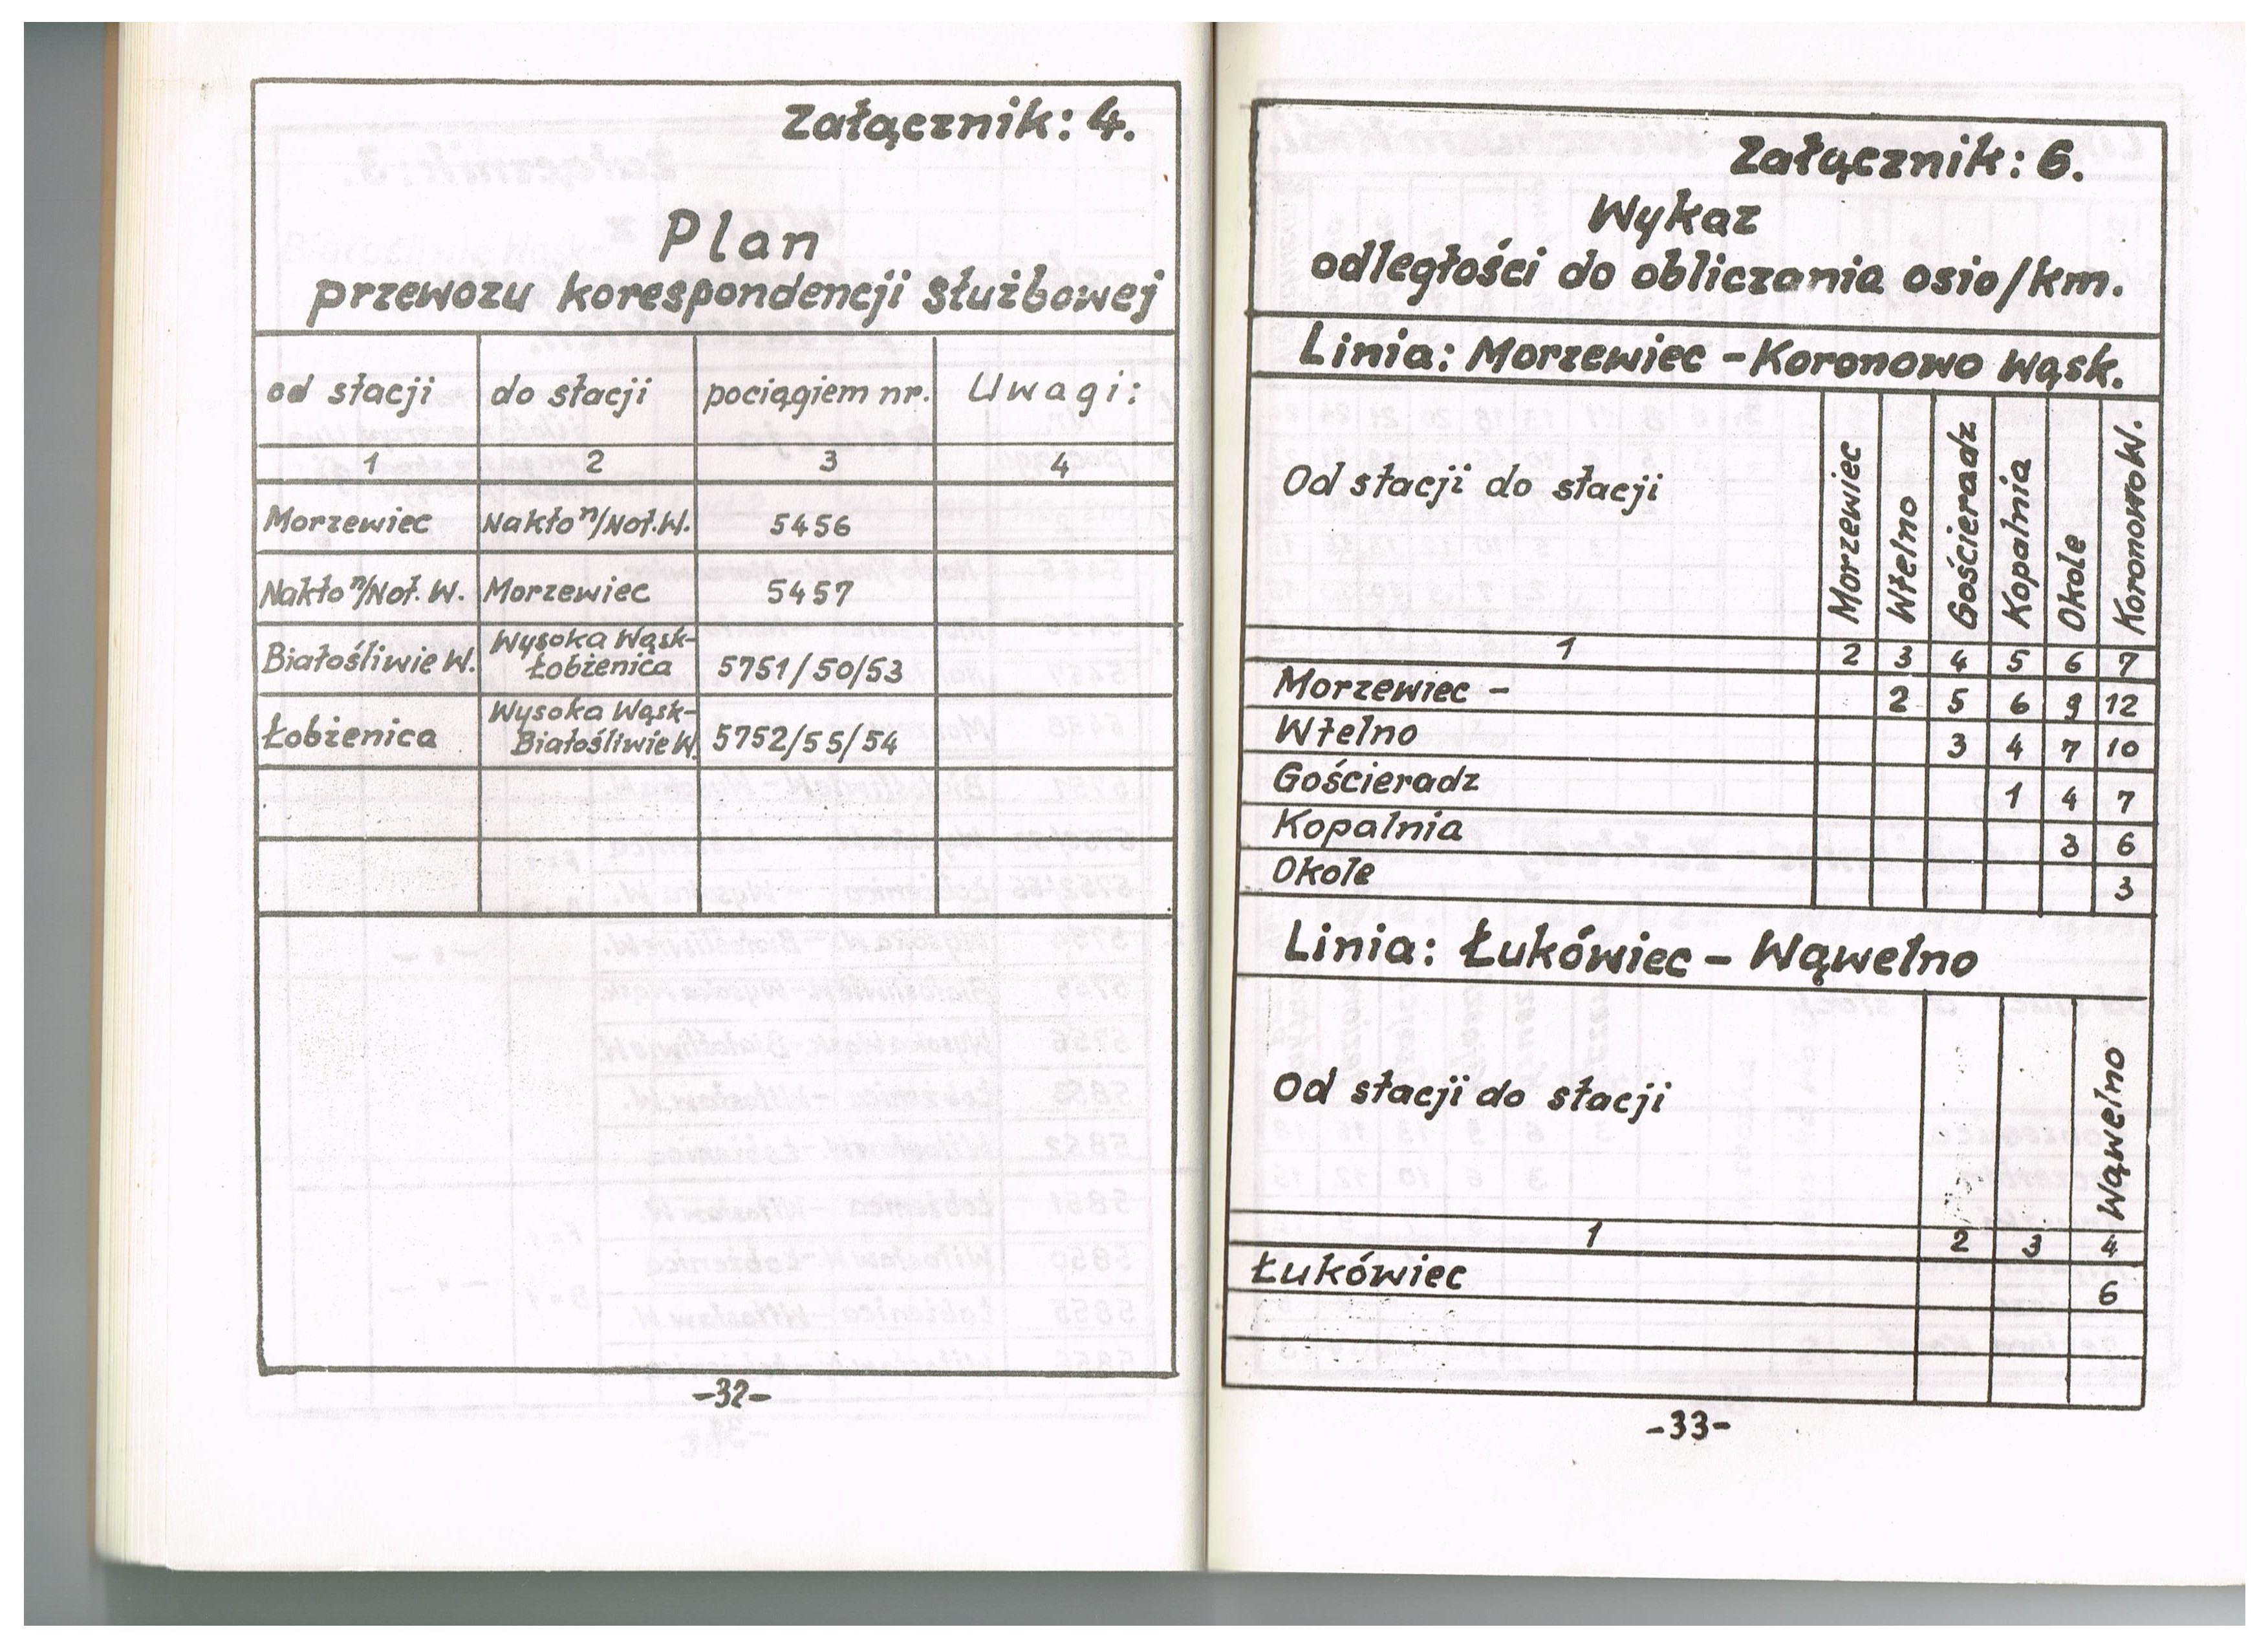 Załącznik: 4.
Plan
przewozu korespondencji służbowej
od stacji do stacji pociągiem nr. Uwagi:
1 2 3 4
Morzewiec Nakło n/Not.W. 5456
Nakło n/Not.W. Morzewiec 5457
Białośliwie W. Wysoka Wąsk-
Łobżenica 5751/50/53
Łobżenica Wysoka Wąsk-
Białośliwie W. 5752/55/54
-32-
Załącznik: 6.
Wykaz
odległości do obliczania osio/km.
Linia: Morzewiec - Koronowo Wąsk.
Od stacji do stacji Morzewiec Wtelno Gościeradz Kopalnia Okole Koronowo W.
1 2 3 4 5 6 7
Morzewiec - 2 5 6 9 12
Wtelno 3 4 7 10
Gościeradz 1 4 7
Kopalnia 3 6
Okole 3
Linia: Łukówiec - Wąwelno
Od stacji do stacji Wąwelno
1 2 3 4
Łukówiec 6
-33-